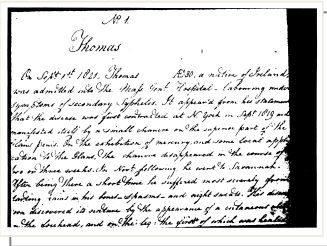 No 1.
Thomas
On Sept. 1st 1821. Thomas R30. a native of Ireland,
was admitted into the Mass. Genl. Hospital - labouring under
symptoms of secondary Syphilis. It appear'd from his statement
that the disease was first contracted at N York in Sept 1819 and
manifested itself by a small chancre on the superior part of the
Glans Penis. On the exhibition of mercury, and some local appli-
cation to the Glans, the chancre disappeared in the course of
two or three weeks. In Nov. following he went to Savannah.
After being there a short time he suffered most severely from
pains in his bones - spasms - and night sweats. His disease
soon discovered its nature by the appearance of a cutaneous
on the forehead, and on the leg: the first of which was healed